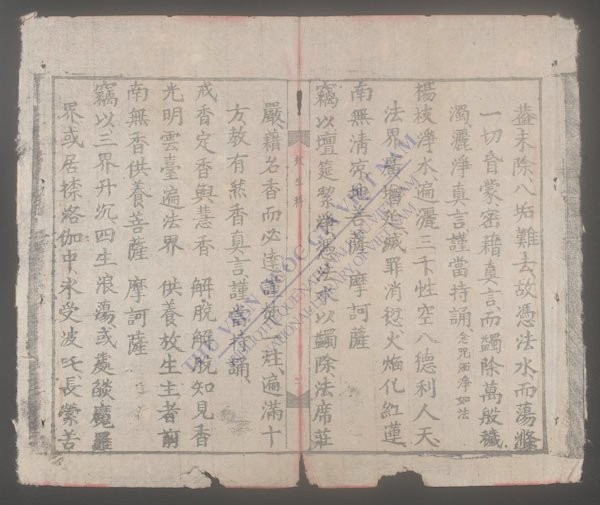 蓋未除八垢難去故憑法水而蕩滌
一切昏蒙密藉真言而蠲除萬般穢
濁灑淨真言謹當持誦 念咒洒淨如法
楊枝淨水遍灑三千性空八德利人天
法界廣增延滅罪消愆火焰化紅蓮
南無清凉地菩薩 摩訶薩
竊以壇筵潔淨憑法水以蠲除法席莊
放生科
嚴藉名香而必達謹焚一炷遍滿十
方教有然香真言謹當持誦
戒香定香與慧香 解脫解脫知見香
光明雲臺遍法界 供養放生主者前
南無香供養菩薩 摩訶薩
竊以三界升沉四生浪蕩或處燄魔羅
界或居㮈洛伽中永受波吒長縈苦
THƯ VIỆN QUỐC GIA VIỆT NAM
NATIONAL LIBRARY OF VIETNAM